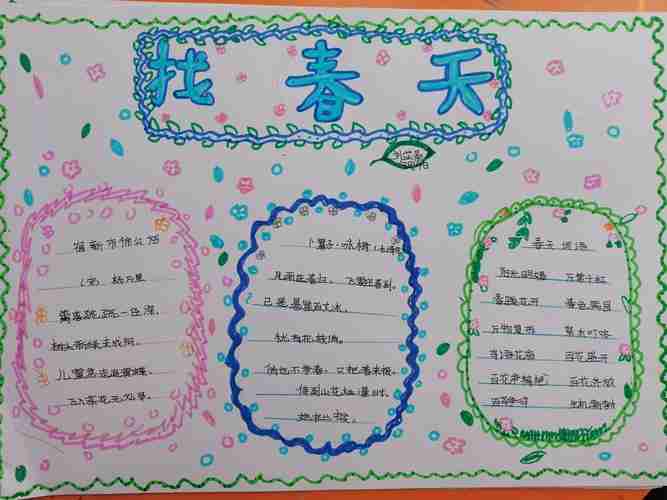 找春天
宿新市徐公店
(宋) 杨万里
篱落疏疏一径深,
树头新绿未成阴。
儿童急走追黄蝶,
飞入菜花无处寻。
卜算子·咏梅
风雨送春归,飞雪迎春到。
已是悬崖百丈冰,
犹有花枝俏。
俏也不争春,只把春来报。
待到山花烂漫时,
她在丛中笑。
春天 词语
阳光明媚 万紫千红
春暖花开 春色满园
万物复苏
鸟语花香 百花盛开
百花争艳 百花齐放
生机勃勃